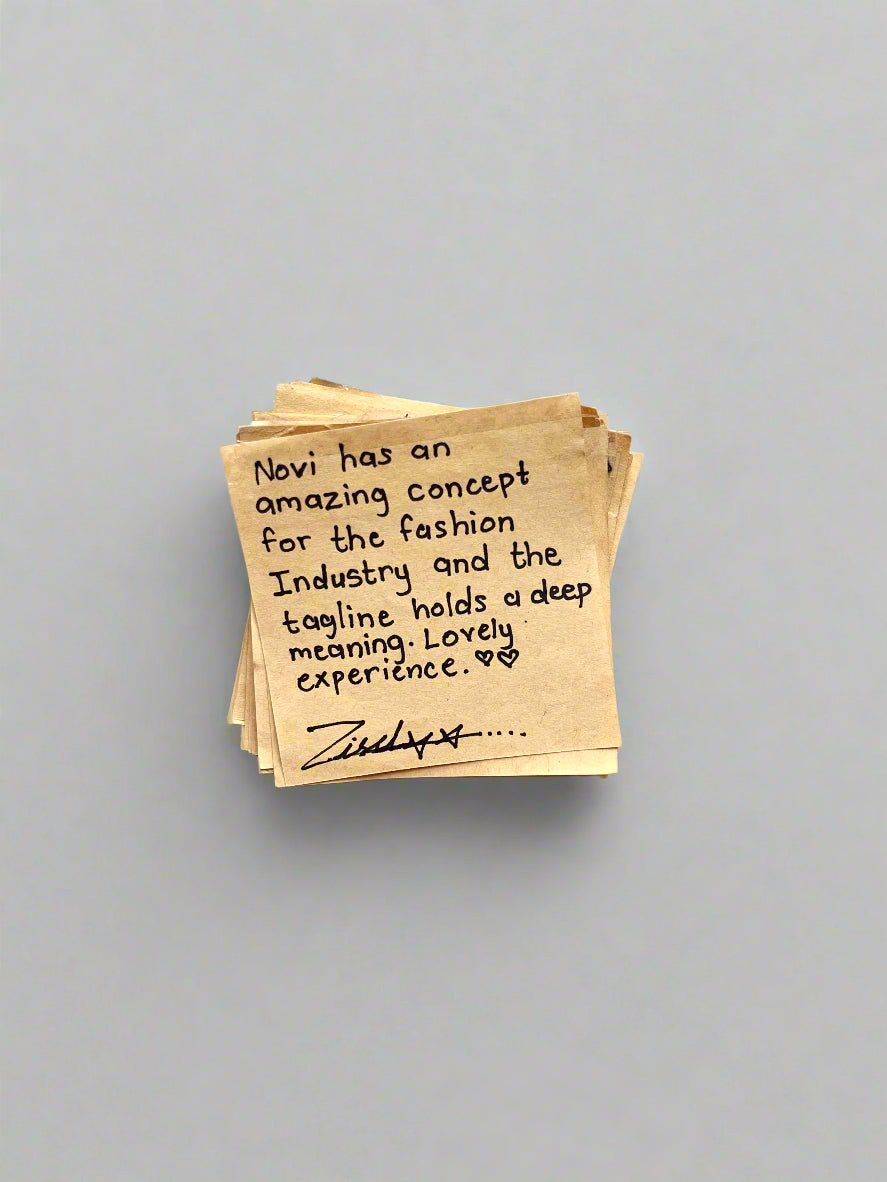 Novi has an
amazing concept
for the fashion
Industry and the
tagline holds a deep
meaning. Lovely
experience. ♡♡